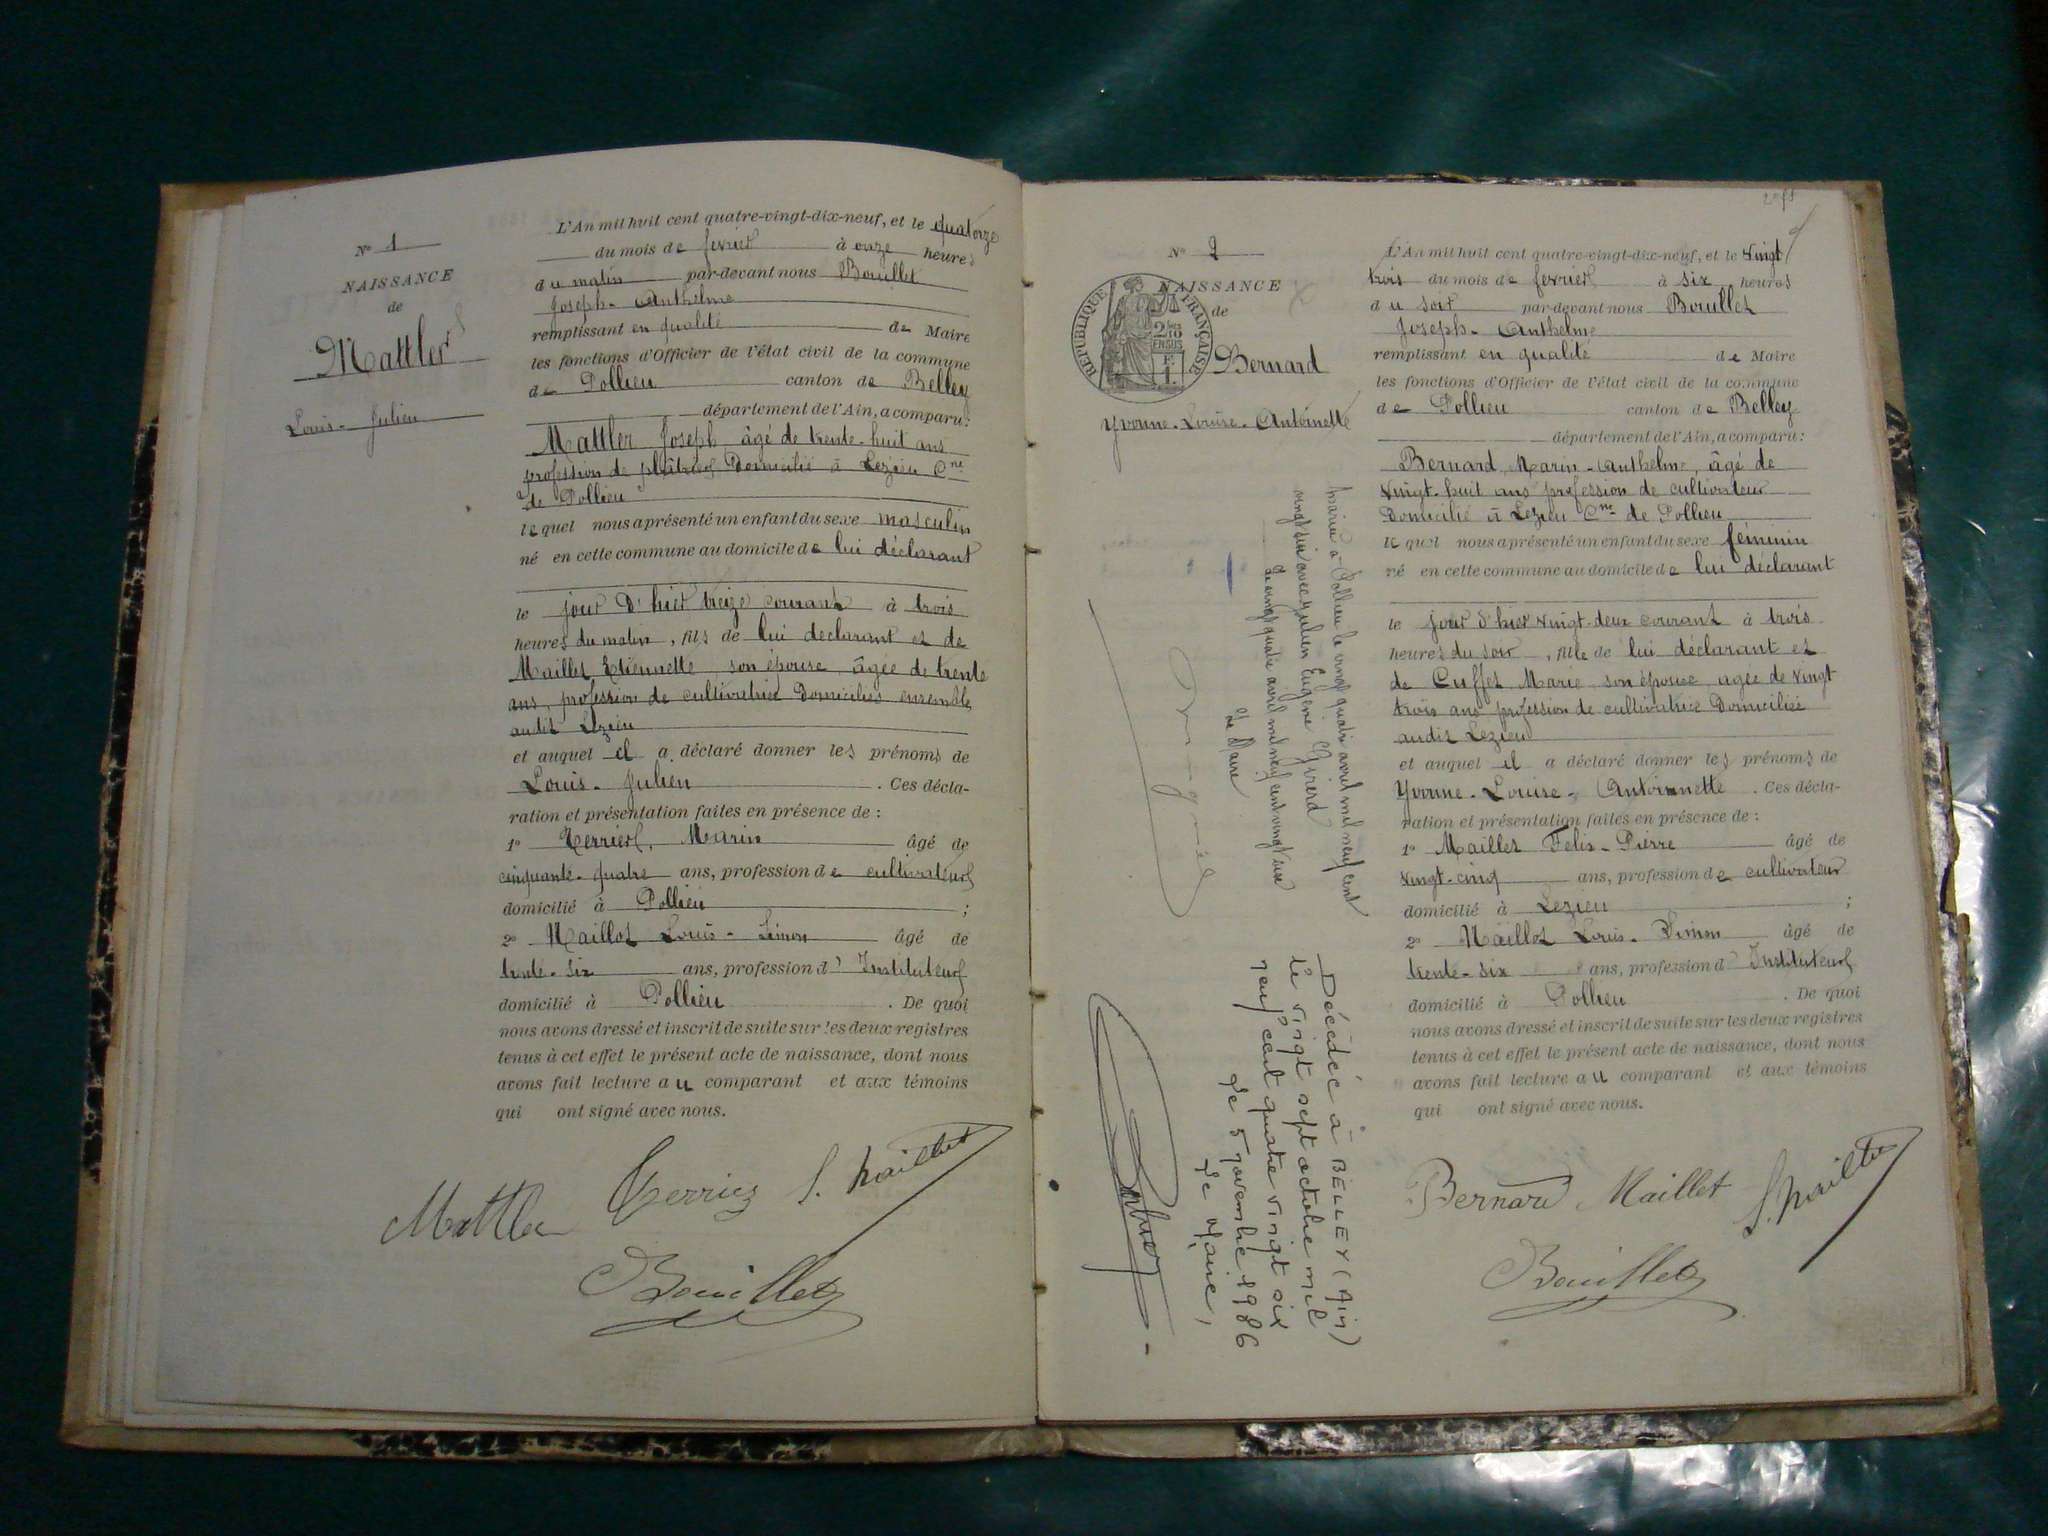 N° 1
NAISSANCE
de
Mattler
Louis-Julien
L'An mil huit cent quatre-vingt-dix-neuf, et le quatorze
du mois de fevrier à onze heures
du matin par-devant nous Bouillet
Joseph-Anthelme
remplissant en qualité de Maire
les fonctions d'Officier de l'état civil de la commune
de Pollieu canton de Belley
département de l'Ain, a comparu:
Mattler Joseph âgé de trente-huit ans
profession de plâtrier Domicilié à Lezieu Cne
de Pollieu
lequel nous a présenté un enfant du sexe masculin
né en cette commune au domicile de lui déclarant
le jour D'hier treize courant à trois
heures du matin, fils de lui déclarant et de
Maillet Etiennette son épouse âgée de trente
ans, profession de cultivatrice Domiciliés ensemble
audit Lezieu
et auquel il a déclaré donner les prénoms de
Louis-Julien . Ces décla-
ration et présentation faites en présence de :
1° Terrier, Marin âgé de
cinquante-quatre ans, profession de cultivateur
domicilié à Pollieu ;
2° Maillot Louis-Simon âgé de
trente-six ans, profession d'Instituteur
domicilié à Pollieu . De quoi
nous avons dressé et inscrit de suite sur les deux registres
tenus à cet effet le présent acte de naissance, dont nous
avons fait lecture au comparant et aux témoins
qui ont signé avec nous.
Mattler Terrier
Bouillet
N° 2
NAISSANCE
de
RÉPUBLIQUE FRANÇAISE
Bernard
Yvonne-Louise-Antoinette
mariée à Pollieu le vingt quatre avril mil neuf cent
vingt six avec Julien Eugène Girerd
Le vingt quatre avril mil neuf cent vingt six
Le Maire
Décédée à BELLEY (Ain)
le vingt sept octobre mil
neuf cent quatre vingt six
Le 5 novembre 1986
Le Maire,
L'An mil huit cent quatre-vingt-dix-neuf, et le vingt
trois du mois de fevrier à six heures
du soir par-devant nous Bouillet
Joseph-Anthelme
remplissant en qualité de Maire
les fonctions d'Officier de l'état civil de la commune
de Pollieu canton de Belley
département de l'Ain, a comparu:
Bernard Marin-Anthelme, âgé de
vingt-huit ans profession de cultivateur
Domicilié à Lezieu Cne de Pollieu
lequel nous a présenté un enfant du sexe féminin
né en cette commune au domicile de lui déclarant
le jour d'hier vingt-deux courant à trois
heures du soir, fille de lui déclarant et
de Cuffet Marie son épouse agée de vingt
trois ans profession de cultivatrice Domiciliée
audit Lezieu
et auquel il a déclaré donner les prénoms de
Yvonne-Louise-Antoinette . Ces décla-
ration et présentation faites en présence de :
1° Maillet Felix-Pierre âgé de
vingt-cinq ans, profession de cultivateur
domicilié à Lezieu ;
2° Maillot Louis-Simon âgé de
trente-six ans, profession d'Instituteur
domicilié à Pollieu . De quoi
nous avons dressé et inscrit de suite sur les deux registres
tenus à cet effet le présent acte de naissance, dont nous
avons fait lecture au comparant et aux témoins
qui ont signé avec nous.
Bernard Maillet
Bouillet